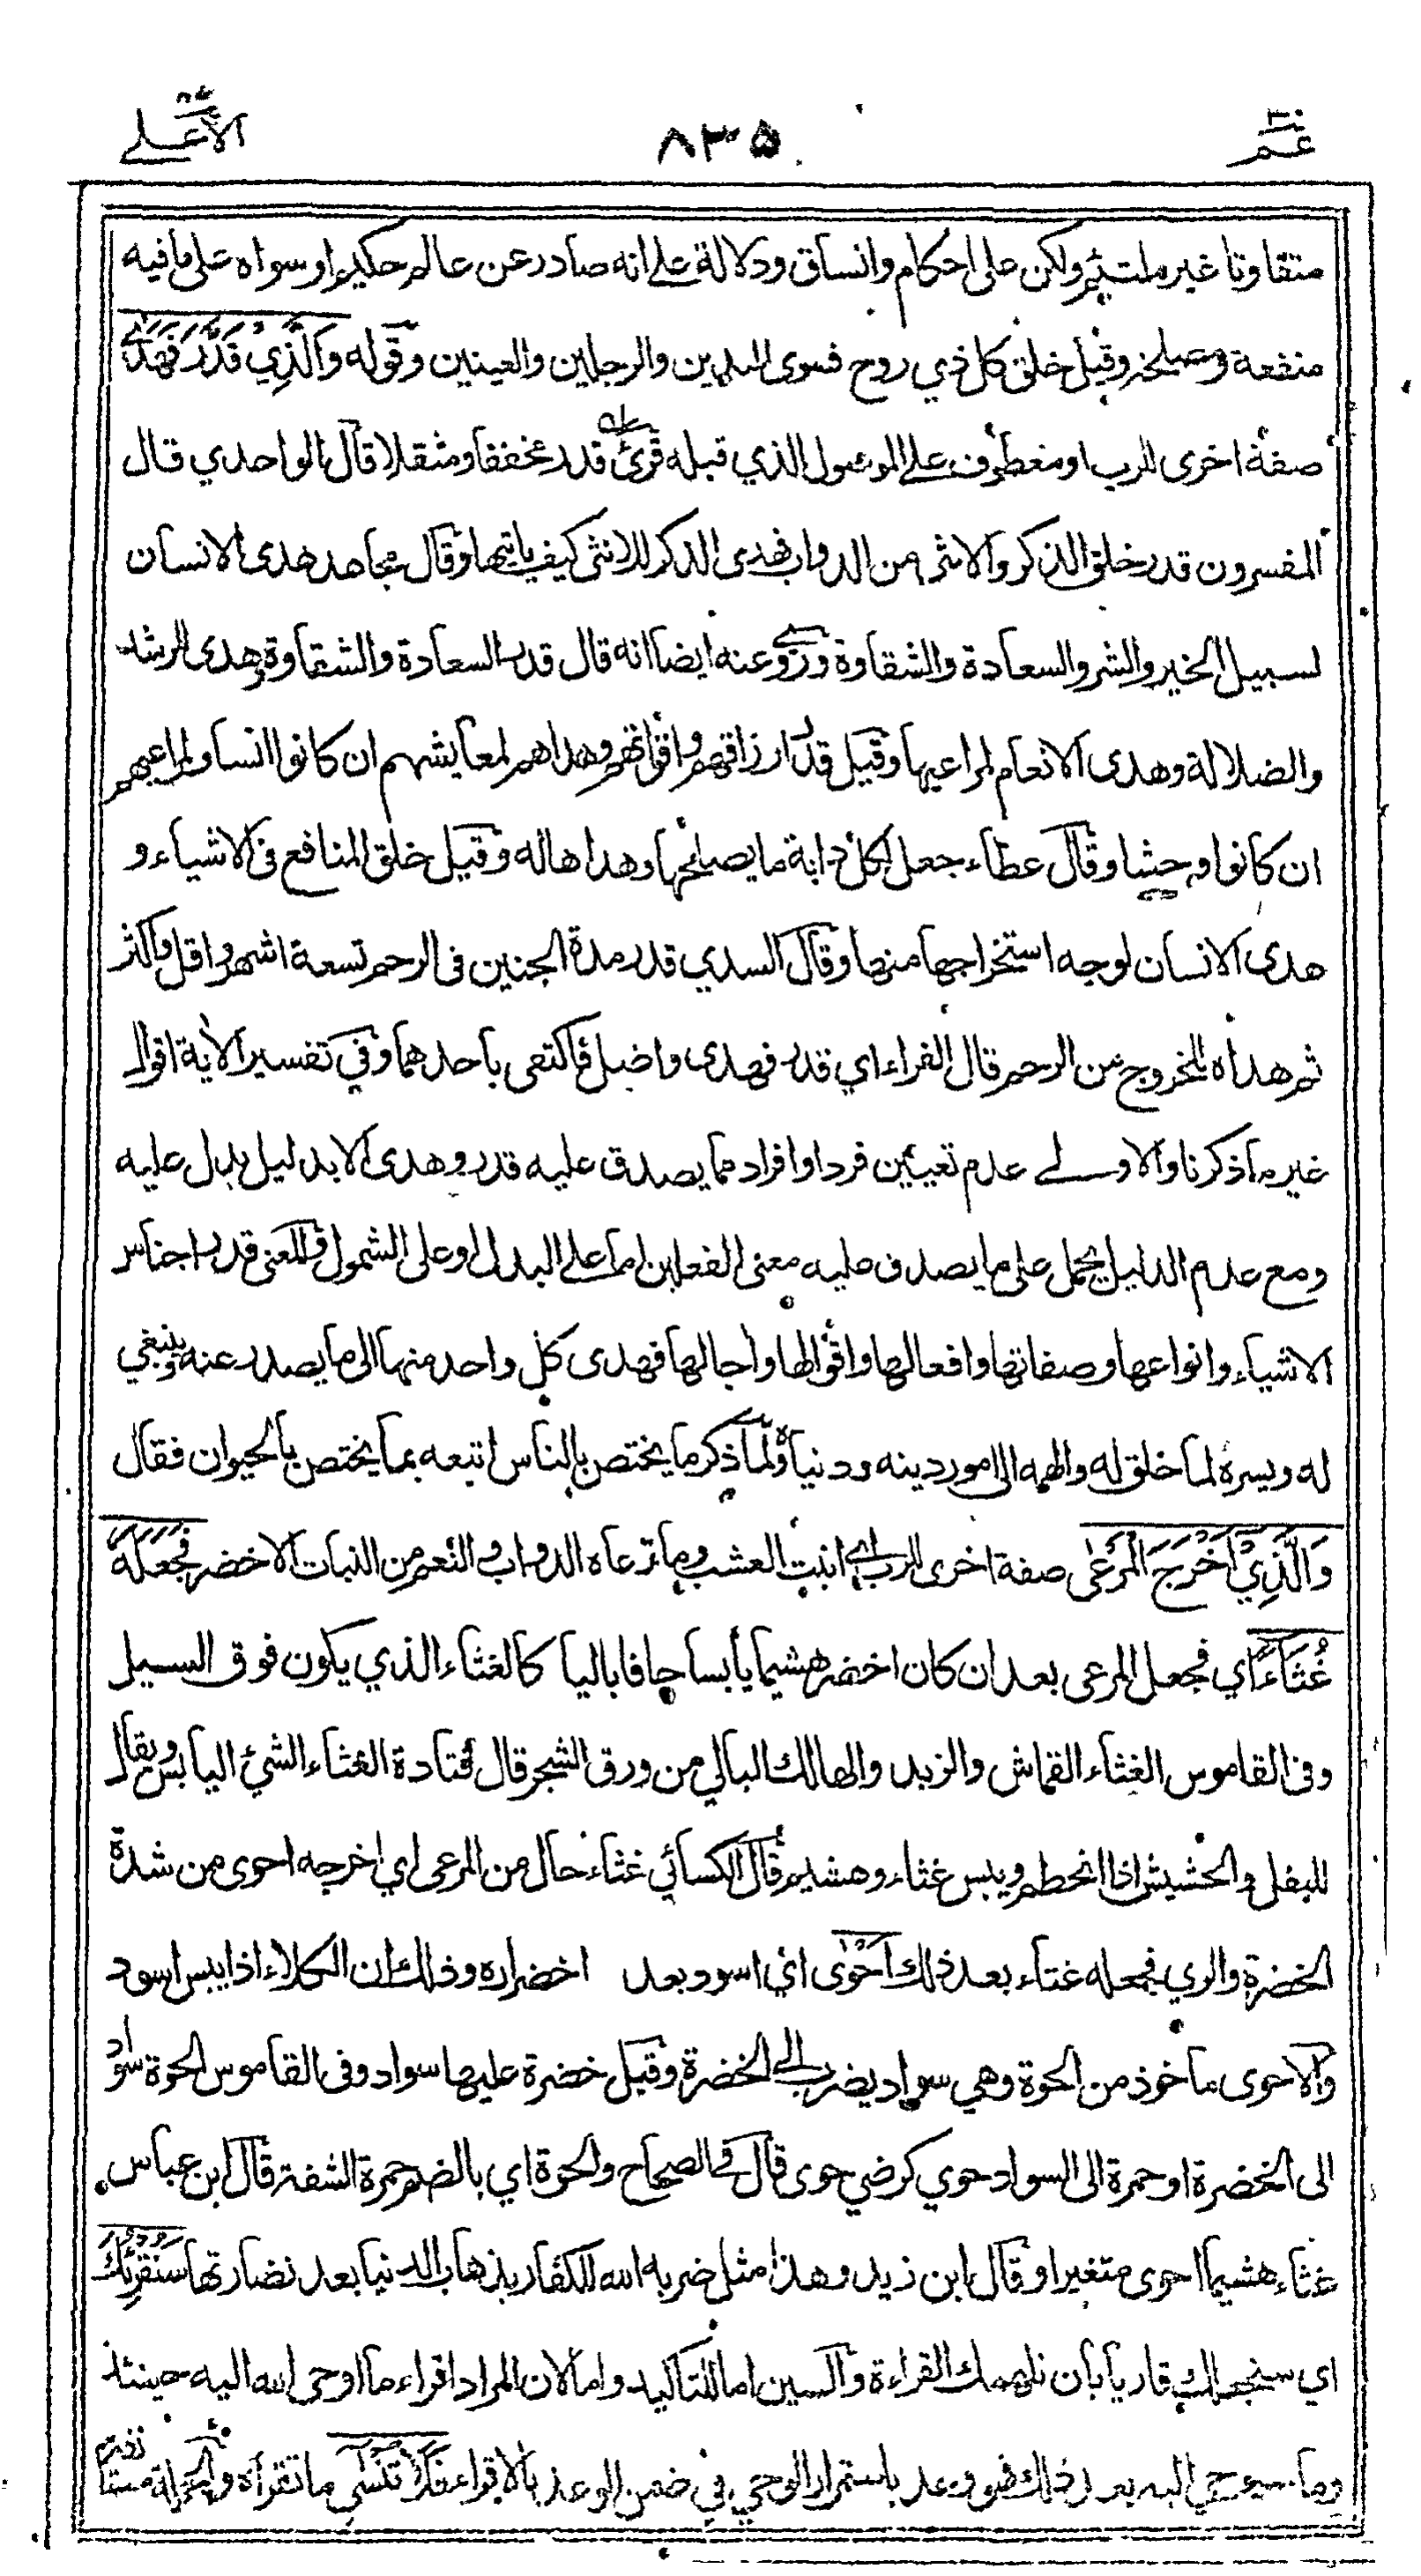 عم ٣٠
٨٣٥
الأعلى ٨٧
متفاوتا غير ملتئم ولكن على احكام وانساق ودلالة على انه صادر عن عالم حكيم او سواه على ما فيه
منفعة ومصلحة وقيل خلق كل ذي روح فسوى اليدين والرجلين والعينين وقوله وَالَّذِيْ قَدَّرَ فَهَدٰى
صفة اخرى للرب او معطوف على الموصول الذي قبله قرئ قدر مخففا ومثقلا قال الواحدي قال
المفسرون قدر خلق الذكر والانثى من الدواب فهدى الذكر للانثى كيف ياتيها وقال مجاهد هدى الانسان
لسبيل الخير والشر والسعادة والشقاوة وروي عنه ايضا انه قال قدر السعادة والشقاوة وهدى الرشد
والضلالة وهدى الانعام لمراعيها وقيل قدر ارزاقهم واقواتهم وهداهم لمعايشهم ان كانوا انسا ولمراعيهم
ان كانوا وحشا وقال عطاء جعل لكل دابة ما يصلحها وهداها له وقيل خلق المنافع فى الاشياء و
هدى الانسان لوجه استخراجها منها وقال السدي قدر مدة الجنين فى الرحم تسعة اشهر واقل واكثر
ثم هداه للخروج من الرحم قال الفراء اي قدر فهدى واضل فاكتفى باحدهما وفي تفسير الاية اقوال
غير ما ذكرنا والاولى عدم تعيين فرد او افراد مما يصدق عليه قدر وهدى الا بدليل يدل عليه
ومع عدم الدليل يحمل على ما يصدق عليه معنى الفعلين اما على البدل او على الشمول والمعنى قدر اجناس
الاشياء وانواعها وصفاتها وافعالها واقوالها واجالها فهدى كل واحد منها الى ما يصدر عنه وينبغي
له ويسره لما خلق له والهمه الى امور دينه ودنياه ولما ذكر ما يختص بالناس اتبعه بما يختص بالحيوان فقال
وَالَّذِيْ اَخْرَجَ الْمَرْعٰى صفة اخرى للرب اي انبت العشب وما ترعاه الدواب والنعم من النبات الاخضر فَجَعَلَهٗ
غُثَاءً اي فجعل المرعى بعد ان كان اخضر هشيما يابسا جافا باليا كالغثاء الذي يكون فوق السيل
وفى القاموس الغثاء القماش والزبد والهالك البالي من ورق الشجر قال قتادة الغثاء الشيئ اليابس ويقال
للبقل والحشيش اذا انحطم ويبس غثاء وهشيم قال الكسائي غثاء حال من المرعى اي اخرجه احوى من شدة
الخضرة والري فجعله غثاء بعد ذلك اَحْوٰى اي اسود بعد اخضراره وذلك ان الكلاء اذا يبس اسود
والاحوى ماخوذ من الحوة وهي سواد يضرب الى الخضرة وقيل خضرة عليها سواد وفى القاموس الحوة سواد
الى الخضرة او حمرة الى السواد حوي كرضي حوى قال فى الصحاح والحوة اي بالضم حمرة الشفة قال ابن عباس
غثاء هشيما احوى متغيرا وقال ابن زيد وهذا مثل ضربه الله للكفار بذهاب الدنيا بعد نضارتها سَنُقْرِئُكَ
اي سنجعلك قاريا بان نلهمك القراءة والسين اما للتاكيد واما لان المراد اقراء ما اوحى الله اليه حينئذ
وما سيوحي اليه بعد ذلك فهو وعد باستمرار الوحي في ضمن الوعد بالاقراء فَلَا تَنْسٰى ما تقرأه والجملة مستانفة